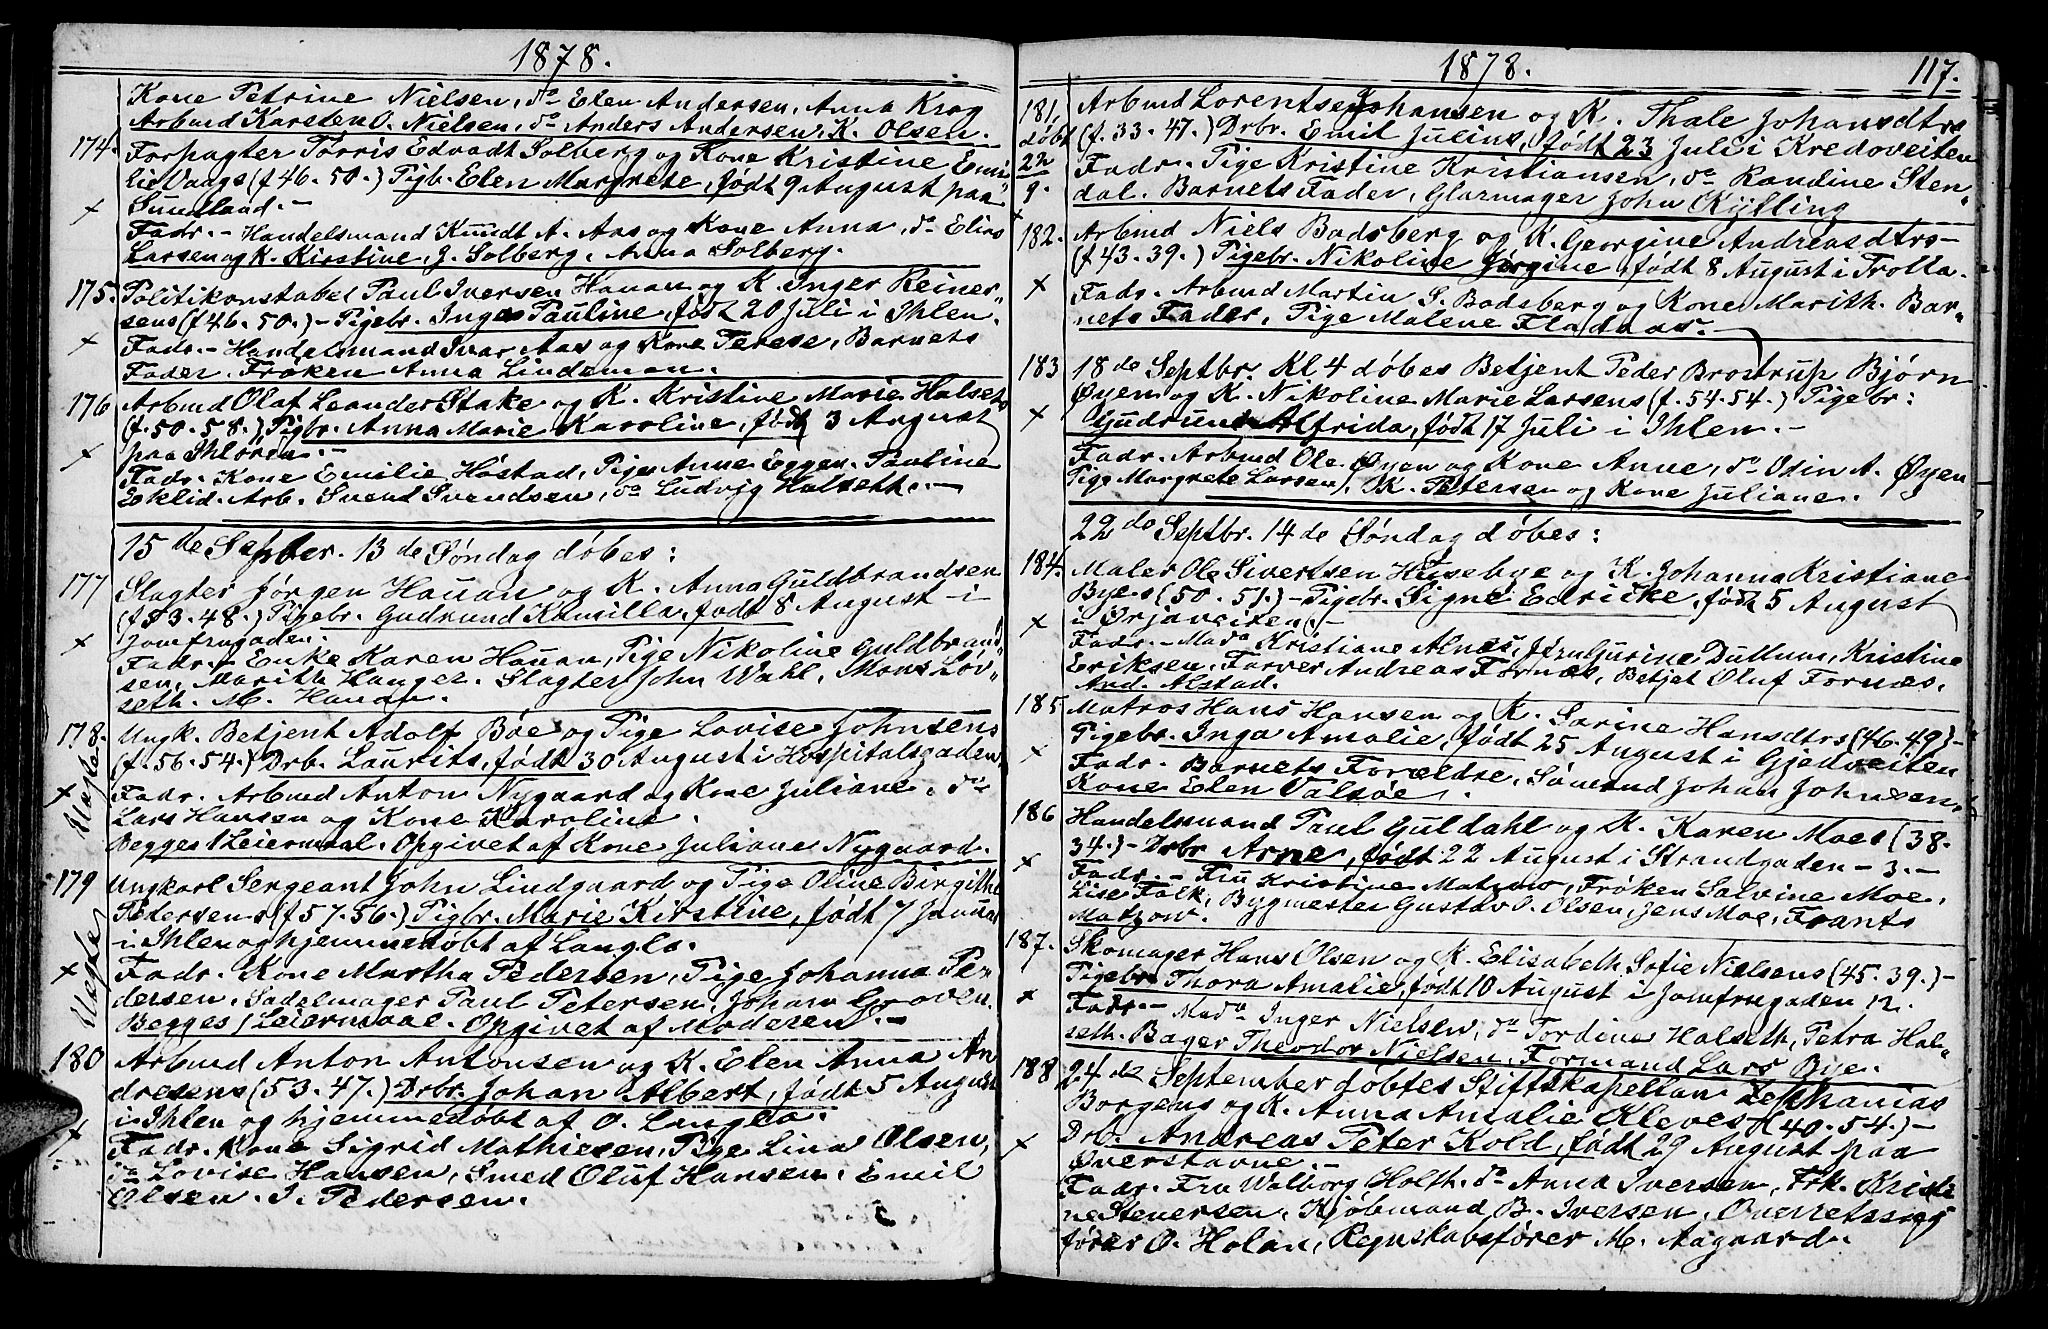 1878.
Kone Petrine Nielsen, do Elen Andersen, Anna Krog
Arbmd Karsten O. Nielsen, do Anders Andersen, K. Olsen.
174. Forpagter Torris Edvadt Solberg og Kone Kristine Emi
lie Vaags (f 46. 50.) Pigb. Elen Margrete, født 9 August paa
Sundland. –
Fadr. – Handelsmand Knudt A. Aas og Kone Anna, do Elias
Larsen og K. Kirstine, J. Solberg, Anna Solberg.
175. Politikonstabel Paul Iversen Hauan og K. Inger Reiner-
sens (f 46. 50.) – Pigebr. Inga Pauline, født 20 Juli i Ihlen.
Fadr. – Handelsmand Ivar Aas og Kone Terese, Barnets
Fader, Frøken Anna Lindeman.
176 Arbmd Olaf Leander Stake og K. Kristine Marie Halseth
(f. 50. 58.) Pigbr. Anna Marie Karoline, født 3 August
paa Ihløren. –
Fadr. Kone Emilie Høstad, Pige Anne Eggen. Pauline
Eeklid. Arb. Svend Svendsen, do Ludvig Halseth. –
15 de Septber. 13 de Søndag døbes:
177 Slagter Jørgen Hauan og K. Anna Guldbrandsen
(f 53. 48.) Pigebr. Gudrund Kamilla, født 8 August – i
Jomfrugaden.
Fadr. – Enke Karen Hauan, Pige Nikoline Guldbrand-
sen, Marith Hanger. Slagter John Wahl, Mons Lov-
seth. M. Hauan.
178. Ungk. Betjent Adolf Bøe og Pige Lovise Johnsens
(f. 56. 54.) Drb. Laurits, født 30 August i Hospitalsgaden
Uægte
Fadr. Arbmd Anton Nygaard og Kone Juliane, do
Lars Hansen og Kone Karoline.
Begges 1 Leiermaal. Opgivet af Kone Juliane Nygaard.
179 Ungkarl Sergeant John Lindgaard og Pige Oline Birgithe
Pedersens (f 57. 56.) Pigbr. Marie Kirstine, født 7 Januar
i Ihlen og hjemmedøbt af Langlo.
Uægte
Fadr. Kone Martha Pedersen, Pige Johanna Pe-
dersen, Sadelmager Paul Petersen, Johan Groven.
Begges 1 Leiermaal. Opgivet af Moderen. –
180 Arbmd Anton Antonsen og K. Elen Anna An
dresens (53. 47.) Drbr. Johan Albert, født 5 August
i Ihlen og hjemmedøbt af O. Langlo.
Fadr. Kone Sigrid Mathiesen, Pige Lina Olsen,
do Lovise Hansen, Smed Oluf Hansen, Emil
Olsen. J. Pedersen.
1878. 117.
181, Arbmd Lorents Johansen og K. Thale Johansdtrs
døbt (f. 33. 47.) Drbr. Emil Julius, født 23 Juli i Kredoveiten
22/9. Fadr. Pige Kristine Kristiansen, do Randine Sten-
dal. Barnets Fader, Glarmager John Kylling
182. Arbmd Niels Badsberg og K. Georgine Andreasdtrs –
(f 43. 39.) Pigebr. Nikoline Jørgine, født 8 August i Trolla.
Fadr. Arbmd Martin S. Badsberg og Kone Marith. Bar-
nets Fader, Pige Malene Fladaas. –
183 18 de Septbr. Kl 4 døbes Betjent Peder Brostrup Bjørn
Øyen og K. Nikoline Marie Larsens (f. 54. 54.) Pigebr:
Gudrun Alfrida, født 17 Juli i Ihlen. –
Fadr. Arbmd Ole Øyen og Kone Anne, do Odin A. Øyen
Pige Margrete Larsen, K. Petersen og Kone Juliane.
22 do Septbr. 14 de Søndag døbes:
184. Maler Ole Sivertsen Husebye og K. Johanna Kristiane
Byes (50. 51.) – Pigebr. Signe Edricke, født 5 August
i Ørjaveiten. –
Fadr. – Mada Kristiane Alnæs, Jfru Gurine Dullum, Kristine
Eriksen. Farver Andreas Fornæs, Betjet Oluf Fornæs.
And. Alstad.
185 Matros Hans Hansen og K. Sarine Hansdtrs (46. 49) –
Pigebr. Inga Amalie, født 25 August i Gjedveiten
Fadr. Barnets Forældre, Sømand Johan Johnsen,
Kone Elen Valsøe.
186 Handelsmand Paul Guldahl og K. Karen Moes (38.
34.) – Drbr Arne, født 22 August i Strandgaden – 3. –
Fadr. – Fru Kristine Matzow, Frøken Salvine Moe,
Lise Falk, Bygmester Gustav O. Olsen, Jens Moe, Frants
Matzow.
187. Skomager Hans Olsen og K. Elisabeth Sofie Nielsens (45. 39.) –
Pigebr Thora Amalie, født 10 August i Jomfrugaden 12.
Fadr. – Mada Inger Nielsen, do Tordine Halseth, Petra Hal-
seth. Bager Theodor Nielsen, Formand Lars Bye.
188 24 de September døbtes Stiftskapellan Zephanias
Borgens og K. Anna Amalie Kleves (40. 54.) –
Drb. Andreas Peter Kold, født 29 August paa
Øverstavne. –
Fadr. Fru Walborg Holth. do Anna Iversen, Frk. Kristi
ne Stenersen, Kjøbmand B. Iversen, Overretssag
fører O. Holan, Regnskabsfører M. Aagaard.